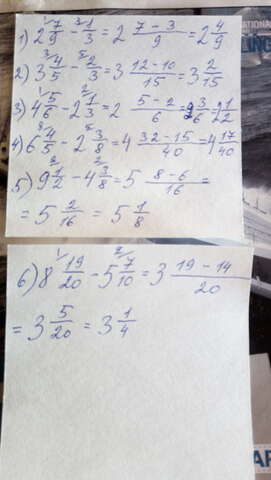 1) 2 7/9 - 1/3 = 2 (7-3)/9 = 2 4/9
2) 3 4/5 - 2/3 = 3 (12-10)/15 = 3 2/15
3) 4 5/6 - 2 1/3 = 2 (5-2)/6 = 2 3/6 2 1/2
4) 6 4/5 - 2 3/8 = 4 (32-15)/40 = 4 17/40
5) 9 1/2 - 4 3/8 = 5 (8-6)/16 =
= 5 2/16 = 5 1/8
6) 8 19/20 - 5 7/10 = 3 (19-14)/20
= 3 5/20 = 3 1/4